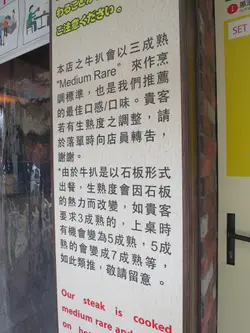 ご注意ください。
本店之牛扒會以三成熟
"Medium Rare" 來作烹
調標準，也是我們推薦
的最佳口感/口味。貴客
若有生熟度之調整，請
於落單時向店員轉告，
謝謝。
*由於牛扒是以石板形式
出餐，生熟度會因石板
的熱力而改變，如貴客
要求3成熟的，上桌時
有機會變為5成熟，5成
熟的會變成7成熟等，
如此類推，敬請留意。
Our steak is cooked
medium rare and
SET